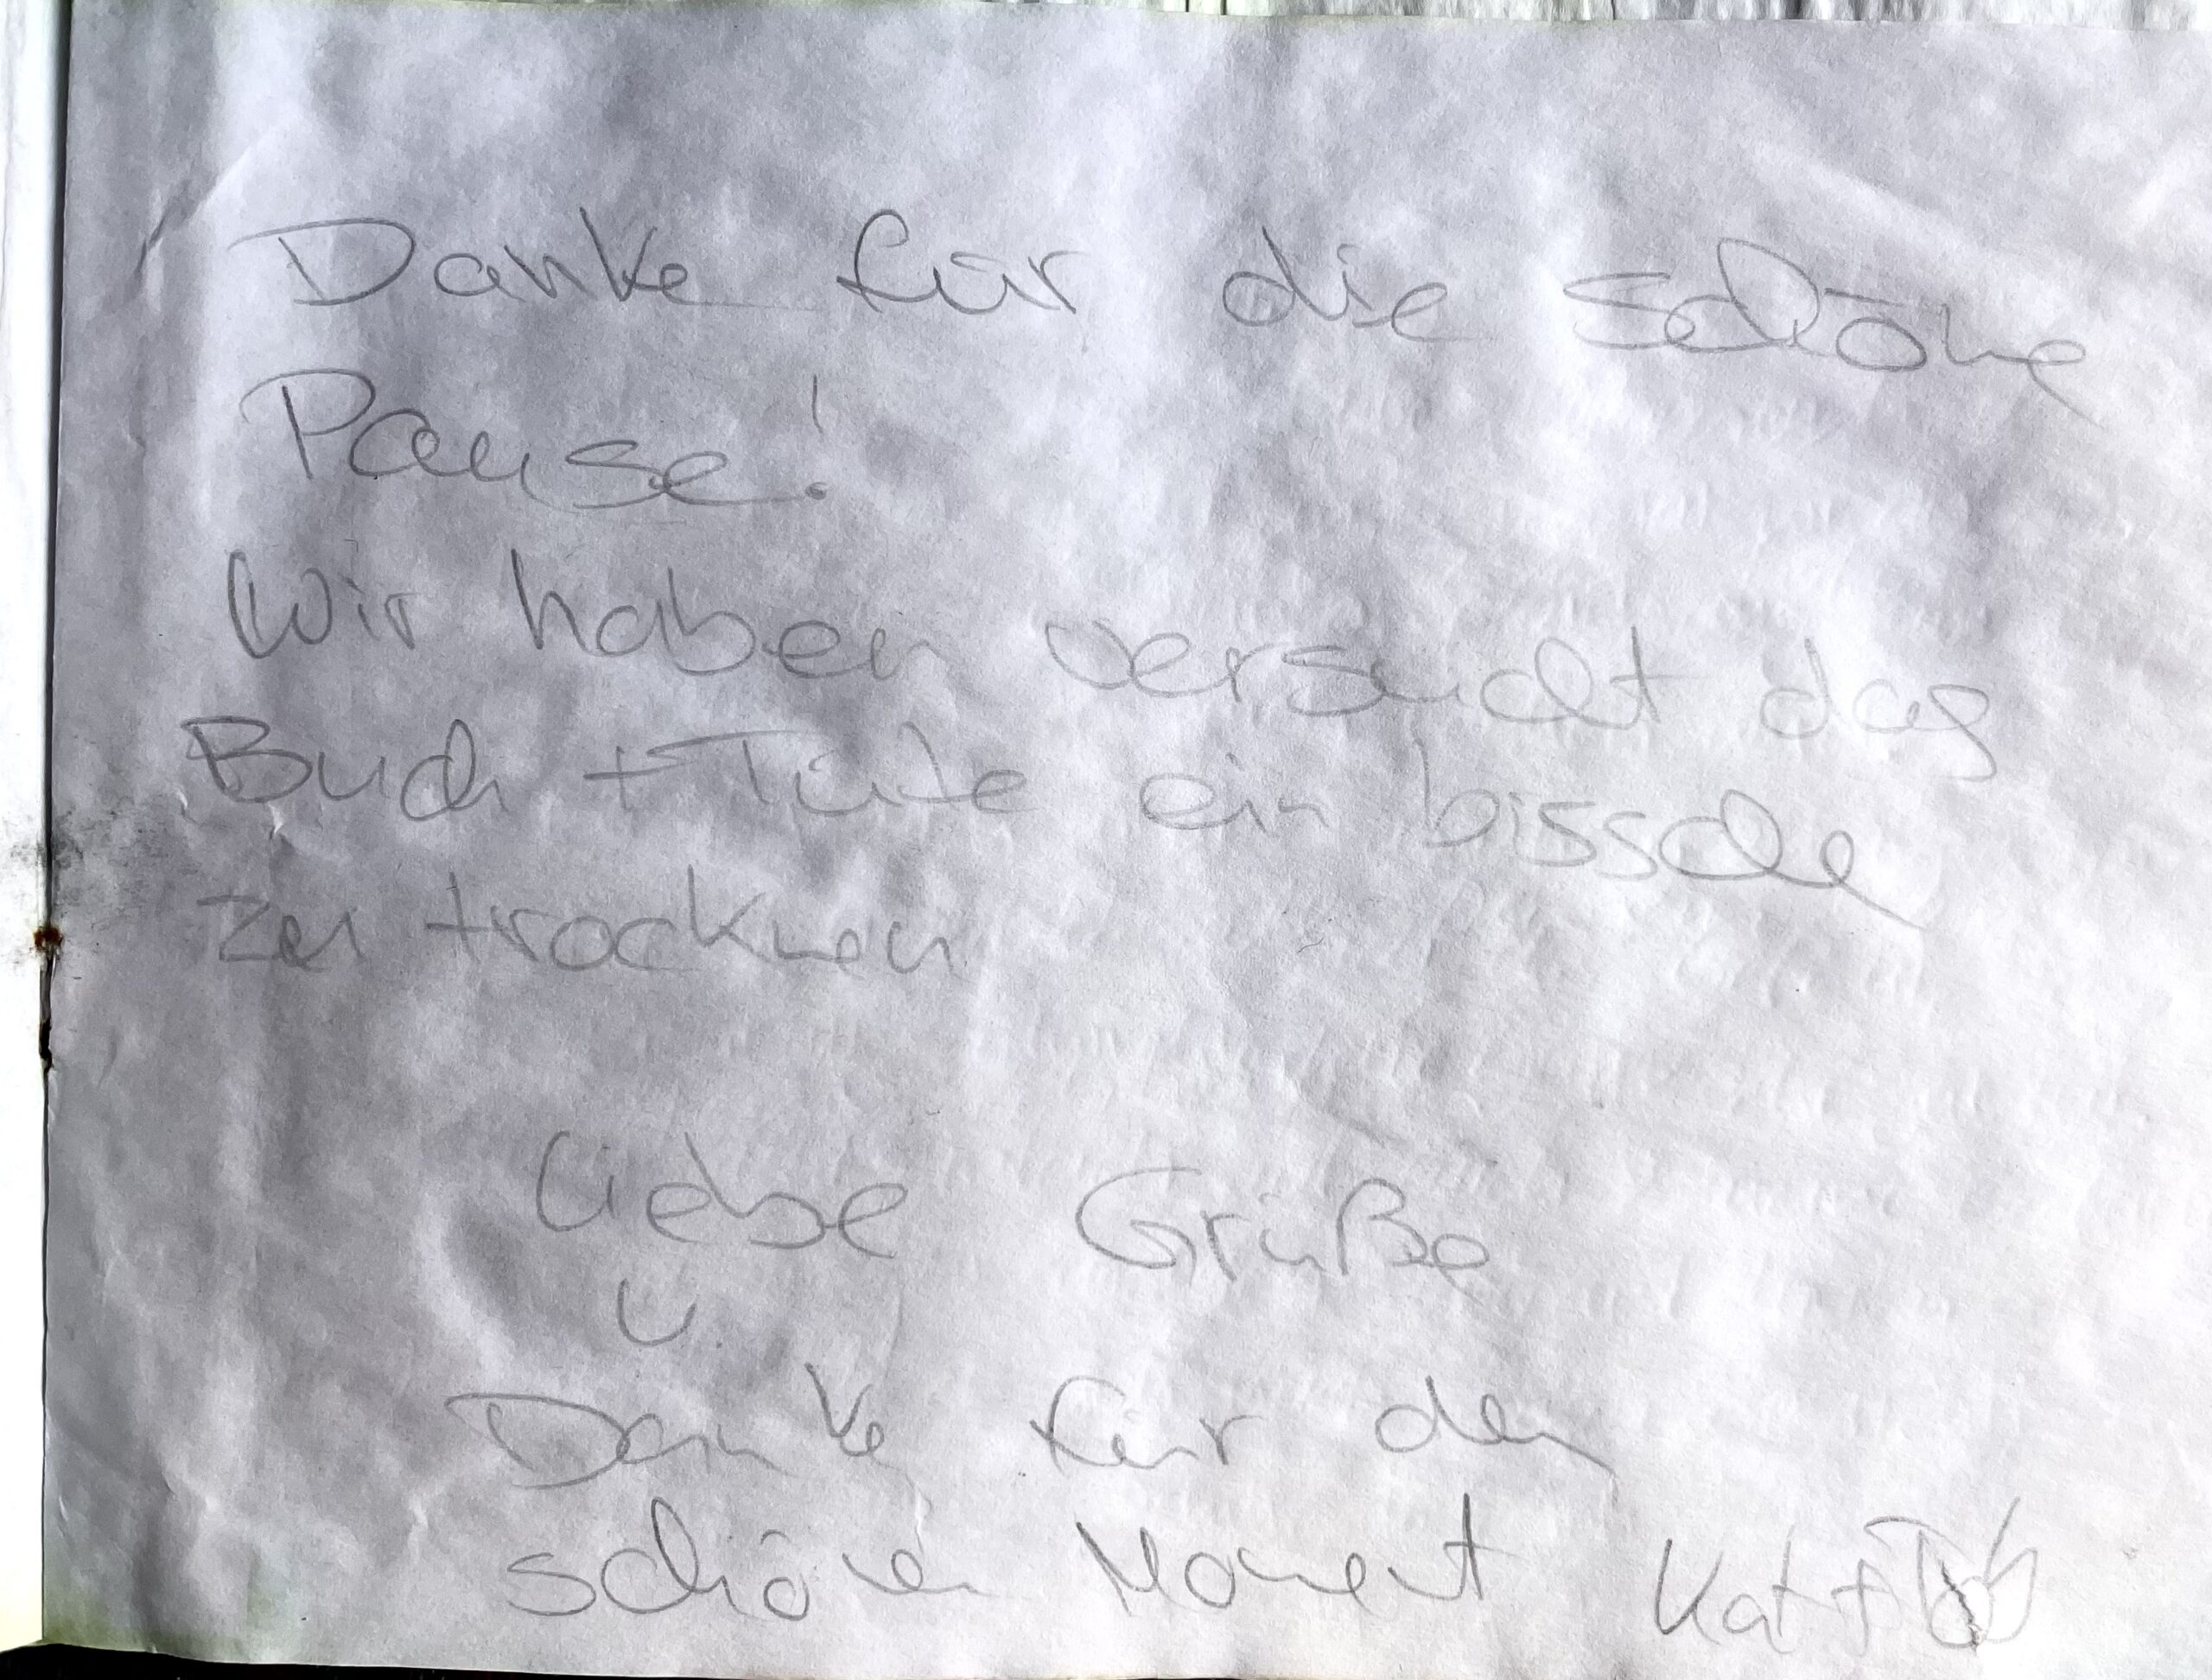 Danke für die schöne
Pause!
Wir haben versucht das
Buch + Tüte ein bissche
zu trocknen
Liebe Grüße
U.
Danke für den
schönen Moment Kat +